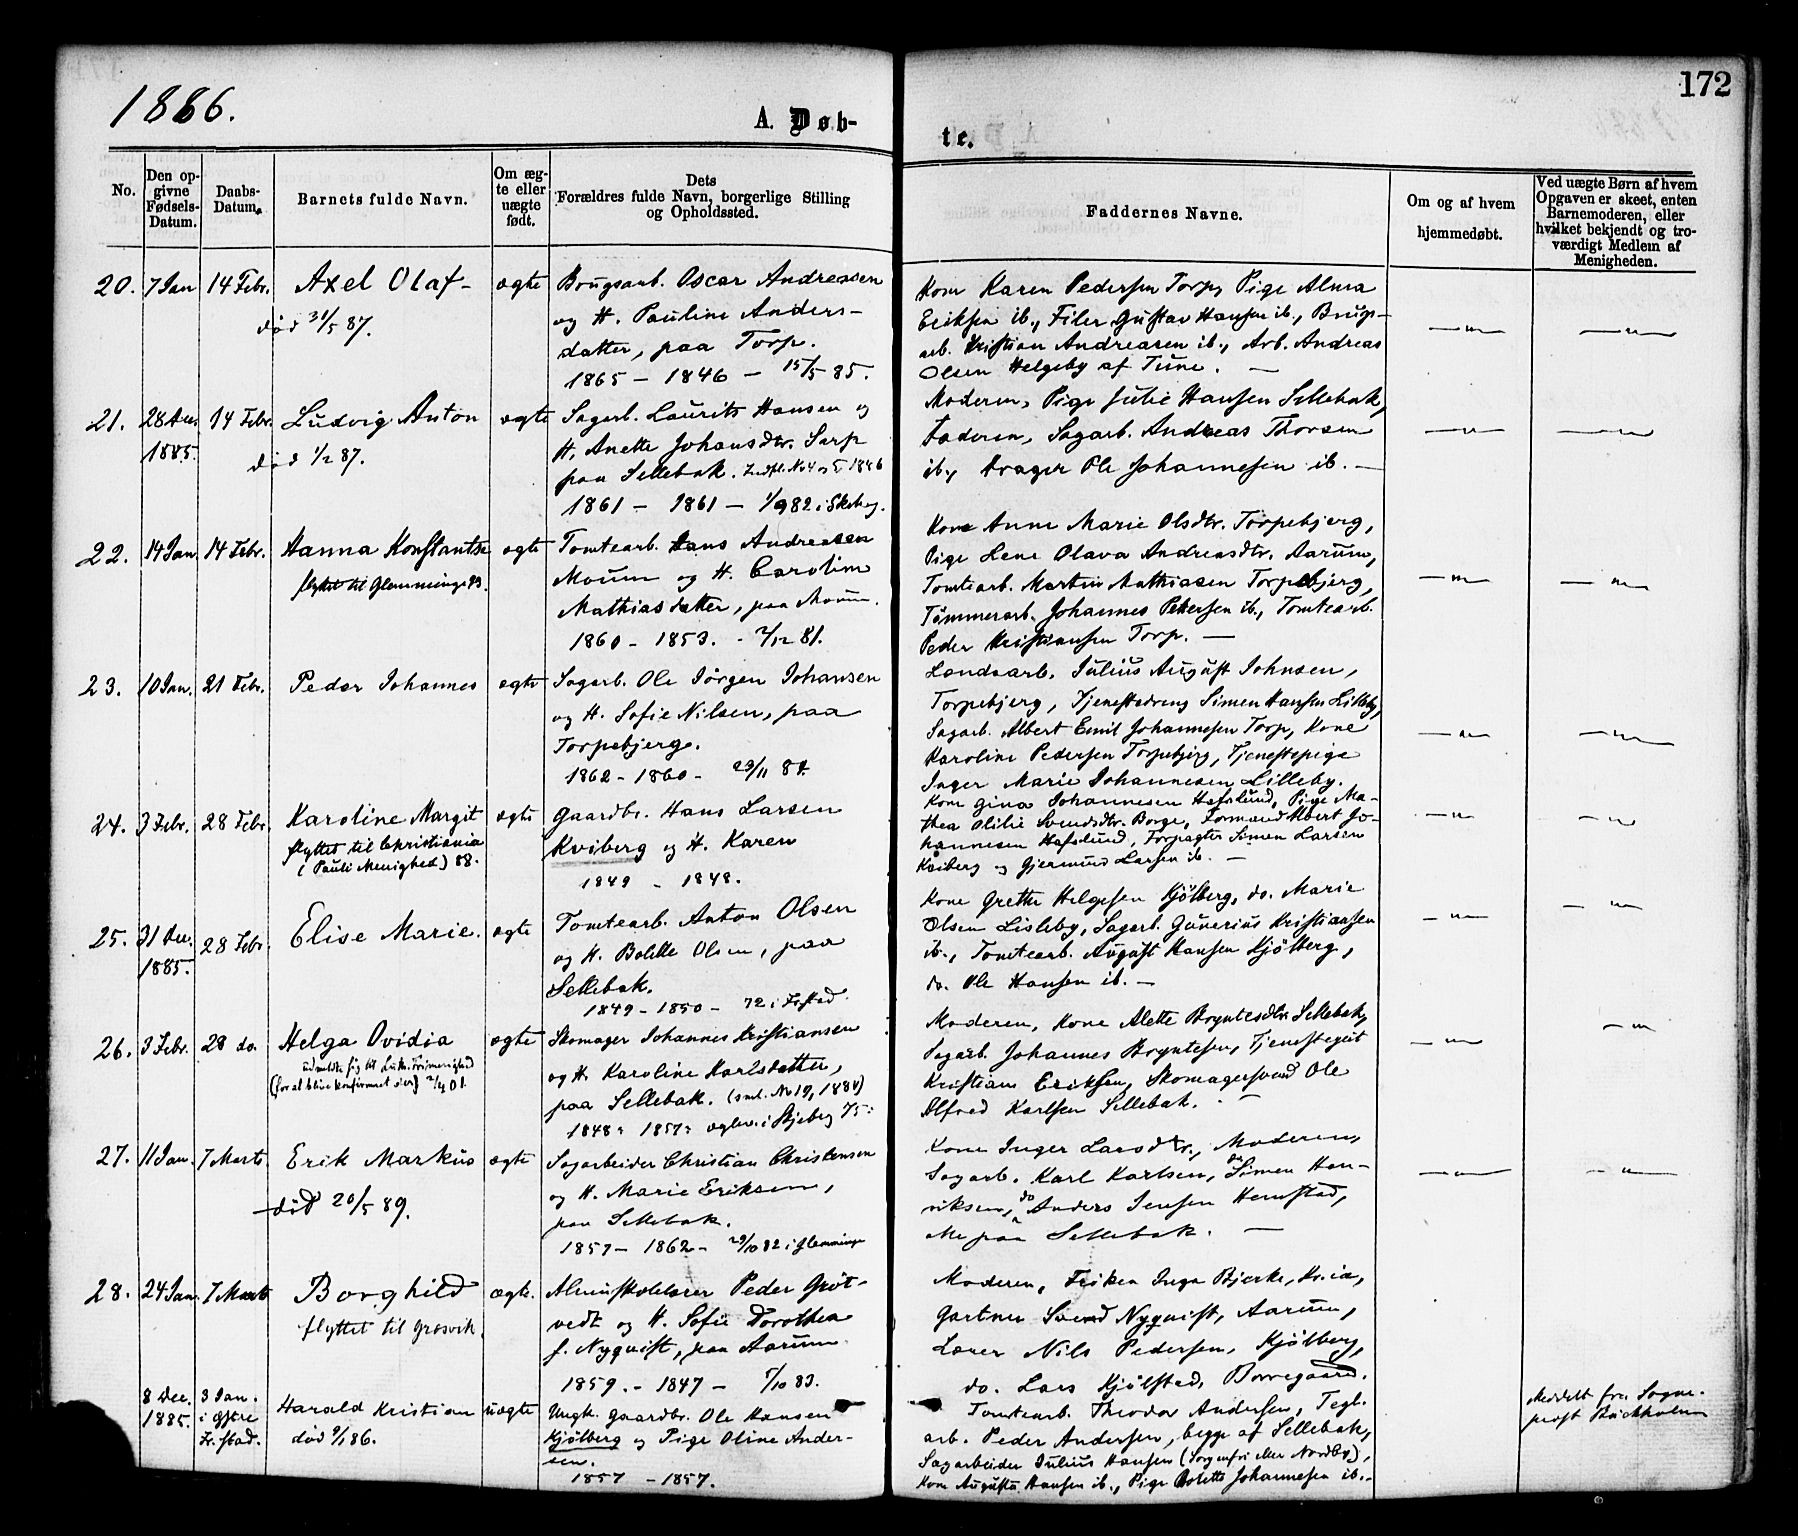 172
1886.
A. Døb-
te.
No.
Den op-
givne
Fødsels-
Datum.
Daabs-
Datum.
Barnets fulde Navn.
Om æg-
te eller
uægte
født.
Dets
Forældres fulde Navn, borgerlige Stilling
og Opholdssted.
Faddernes Navne.
Om og af hvem
hjemmedøbt.
Ved uægte Børn af hvem
Opgaven er skeet, enten
Barnemoderen, eller
hvilket bekjendt og tro-
værdigt Medlem af
Menigheden.
20. 7 Jan 14 Febr. Axel Olaf ægte
død 31/5 87.
Brugsarb. Oscar Andreasen
og H. Pauline Anders-
datter, paa Torp.
1865 - 1846 - 15/5 85.
Kone Karen Pedersen Torp, Pige Alma
Eriksen ib., Filer Gustav Hansen ib., Brugs-
arb. Kristian Andreasen ib., Arb. Andreas
Olsen Helgeby af Tune. —
21. 28 Dec. 1885. 14 Febr. Ludvig Anton ægte
død 1/2 87.
Sagarb. Laurits Hansen og
H. Anette Johansdtr. Sarp
paa Sellebak. Indfl. No 4 og 5 1886
1861 - 1861 - 1/9 82 i Skeberg.
Moderen, Pige Julie Hansen Sellebak,
Faderen, Sagarb. Andreas Thorsen
ib., Drager Ole Johannesen ib. —
22. 14 Jan 14 Febr. Hanna Konstantse ægte
flyttet til Glemminge 93.
Tomtearb. Hans Andreasen
Moum og H. Caroline
Mathiasdatter, paa Moum.
1860 - 1853. - 2/12 81.
Kone Anne Marie Olsdtr. Torpebjerg,
Pige Lene Olava Andreasdtr. Aarum,
Tomtearb. Martin Mathiasen Torpebjerg,
Tømmerarb. Johannes Petersen ib., Tomtearb.
Peder Kristiansen Torp. —
23. 10 Jan. 21 Febr. Peder Johannes ægte
Sagarb. Ole Jörgen Johansen
og H. Sofie Nilsen, paa
Torpebjerg.
1862 - 1860 - 23/11 84.
Landsarb. Julius August Johnsen,
Torpebjerg, Tjenestedreng Simen Hansen Lilleby,
Sagarb. Albert Emil Johannesen Torp, Kone
Karoline Pedersen Torpebjerg, Tjenestepige
Inger Marie Johannesen Lilleby.
24. 3 Febr. 28 Febr. Karoline Margit ægte
flyttet til Christiania
(Pauls Menighed) 88.
Gaardbr. Hans Larsen
Kviberg og H. Karen
1849 - 1848.
Kone Gina Johannesen Hafslund, Pige Ma-
thea Otilie Svendsdtr. Borge, Formand Albert Jo-
hannesen Hafslund, Forpagter Simen Larsen
Kviberg og Gjermund Larsen ib. —
25. 31 Dec. 1885. 28 Febr. Elise Marie. ægte
Tomtearb. Anton Olsen
og H. Bolette Olsen, paa
Sellebak.
1849 - 1850 - 72 i Frstad.
Kone Grethe Helgesen Kjölberg, do. Marie
Olsen Lisleby, Sagarb. Gunerius Kristiansen
ib., Tomtearb. August Hansen Kjölberg,
do. Ole Hansen ib. —
26. 3 Febr. 28 do. Helga Ovidia ægte
udmeldte sig til Luth. Frimenighed
(for at blive konfirmeret der) 2/4 01.
Skomager Johannes Kristiansen
og H. Karoline Karlsdatter,
paa Sellebak. (sml. No 19, 1884)
1848 - 1857 - ægtev. i Skjeberg 75.
Moderen, Kone Alette Bryntesdtr. Sellebak,
Sagarb. Johannes Bryntesen, Tjenestegut
Kristian Eriksen, Skomagersvend Ole
Alfred Karlsen Sellebak. —
27. 11 Jan. 7 Marts Erik Markus ægte
død 20/5 89.
Sagarbeider Christian Christensen
og H. Marie Eriksen,
paa Sellebak.
1857 - 1862 - 29/10 82 i Glemminge
Kone Inger Larsdtr., Moderen,
Sagarb. Karl Karlsen, do Simen Hen-
riksen, do Anders Jensen Hemstad,
alle paa Sellebak. —
28. 24 Jan. 7 Marts Borghild ægte.
flyttet til Gresvik.
Almueskolelærer Peder Grøt-
vedt og H. Sofie Dorothea
f. Nyquist, paa Aarum.
1859. - 1847 - 5/10 83.
Moderen, Frøken Inga Bjerke, Kr.ia,
Gartner Svend Nyquist, Aarum,
Lærer Nils Pedersen, Kjölberg,
do. Lars Kjölstad, Borregaard.
8 Dec. 1885. 3 Jan. i Østre Fr.stad. Harald Kristian uægte
død 9/1 86.
Ungk. Gaardbr. Ole Hansen
Kjølberg og Pige Oline Ander-
sen.
1857 - 1857.
Tomtearb. Theodor Andersen, Tegl-
arb. Peder Andersen, begge af Sellebak,
Sagarbeider Julius Hansen (Sorgenfri eller Nordby),
Kone Augusta Hansen ib., Pige Bolette Johannesen ib.
Meddelt fra Sogne-
prest Buckholm